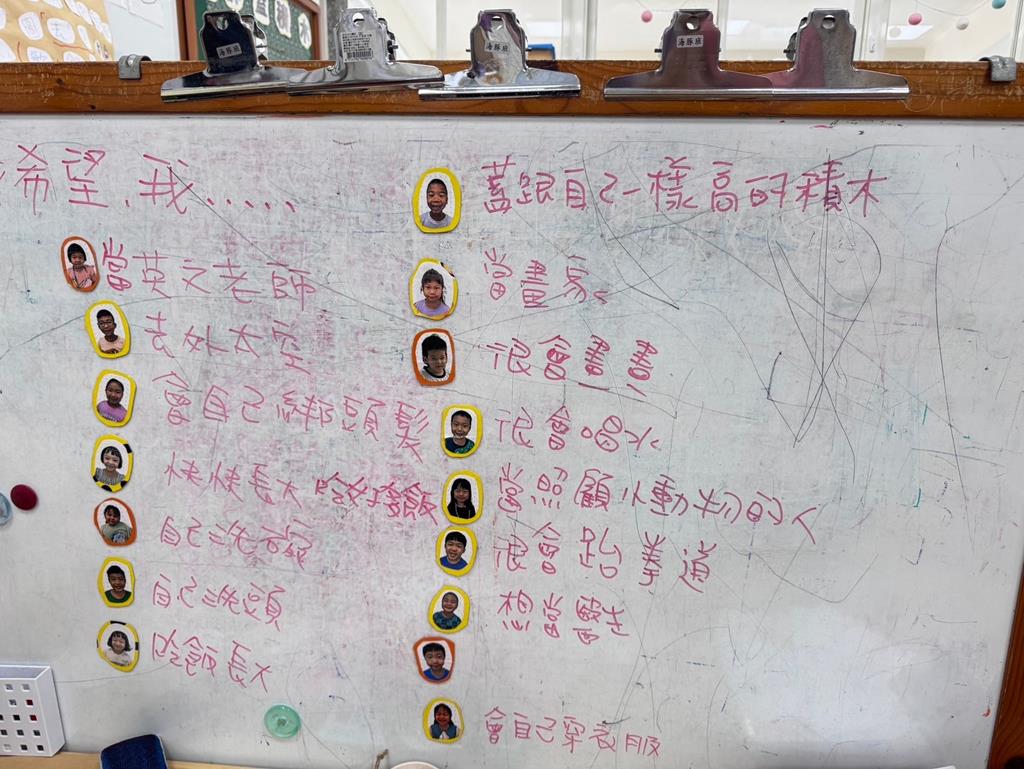 海豚班
海豚班
海豚班
希望,我.....
當英文老師
去外太空
會自己綁頭髮
快快長大
自己洗碗
自己洗頭
吃飯長大
蓋跟自己一樣高的積木
當畫家
很會畫畫
很會喝水
當照顧小動物的人
很會跆拳道
想當醫生
會自己穿衣服